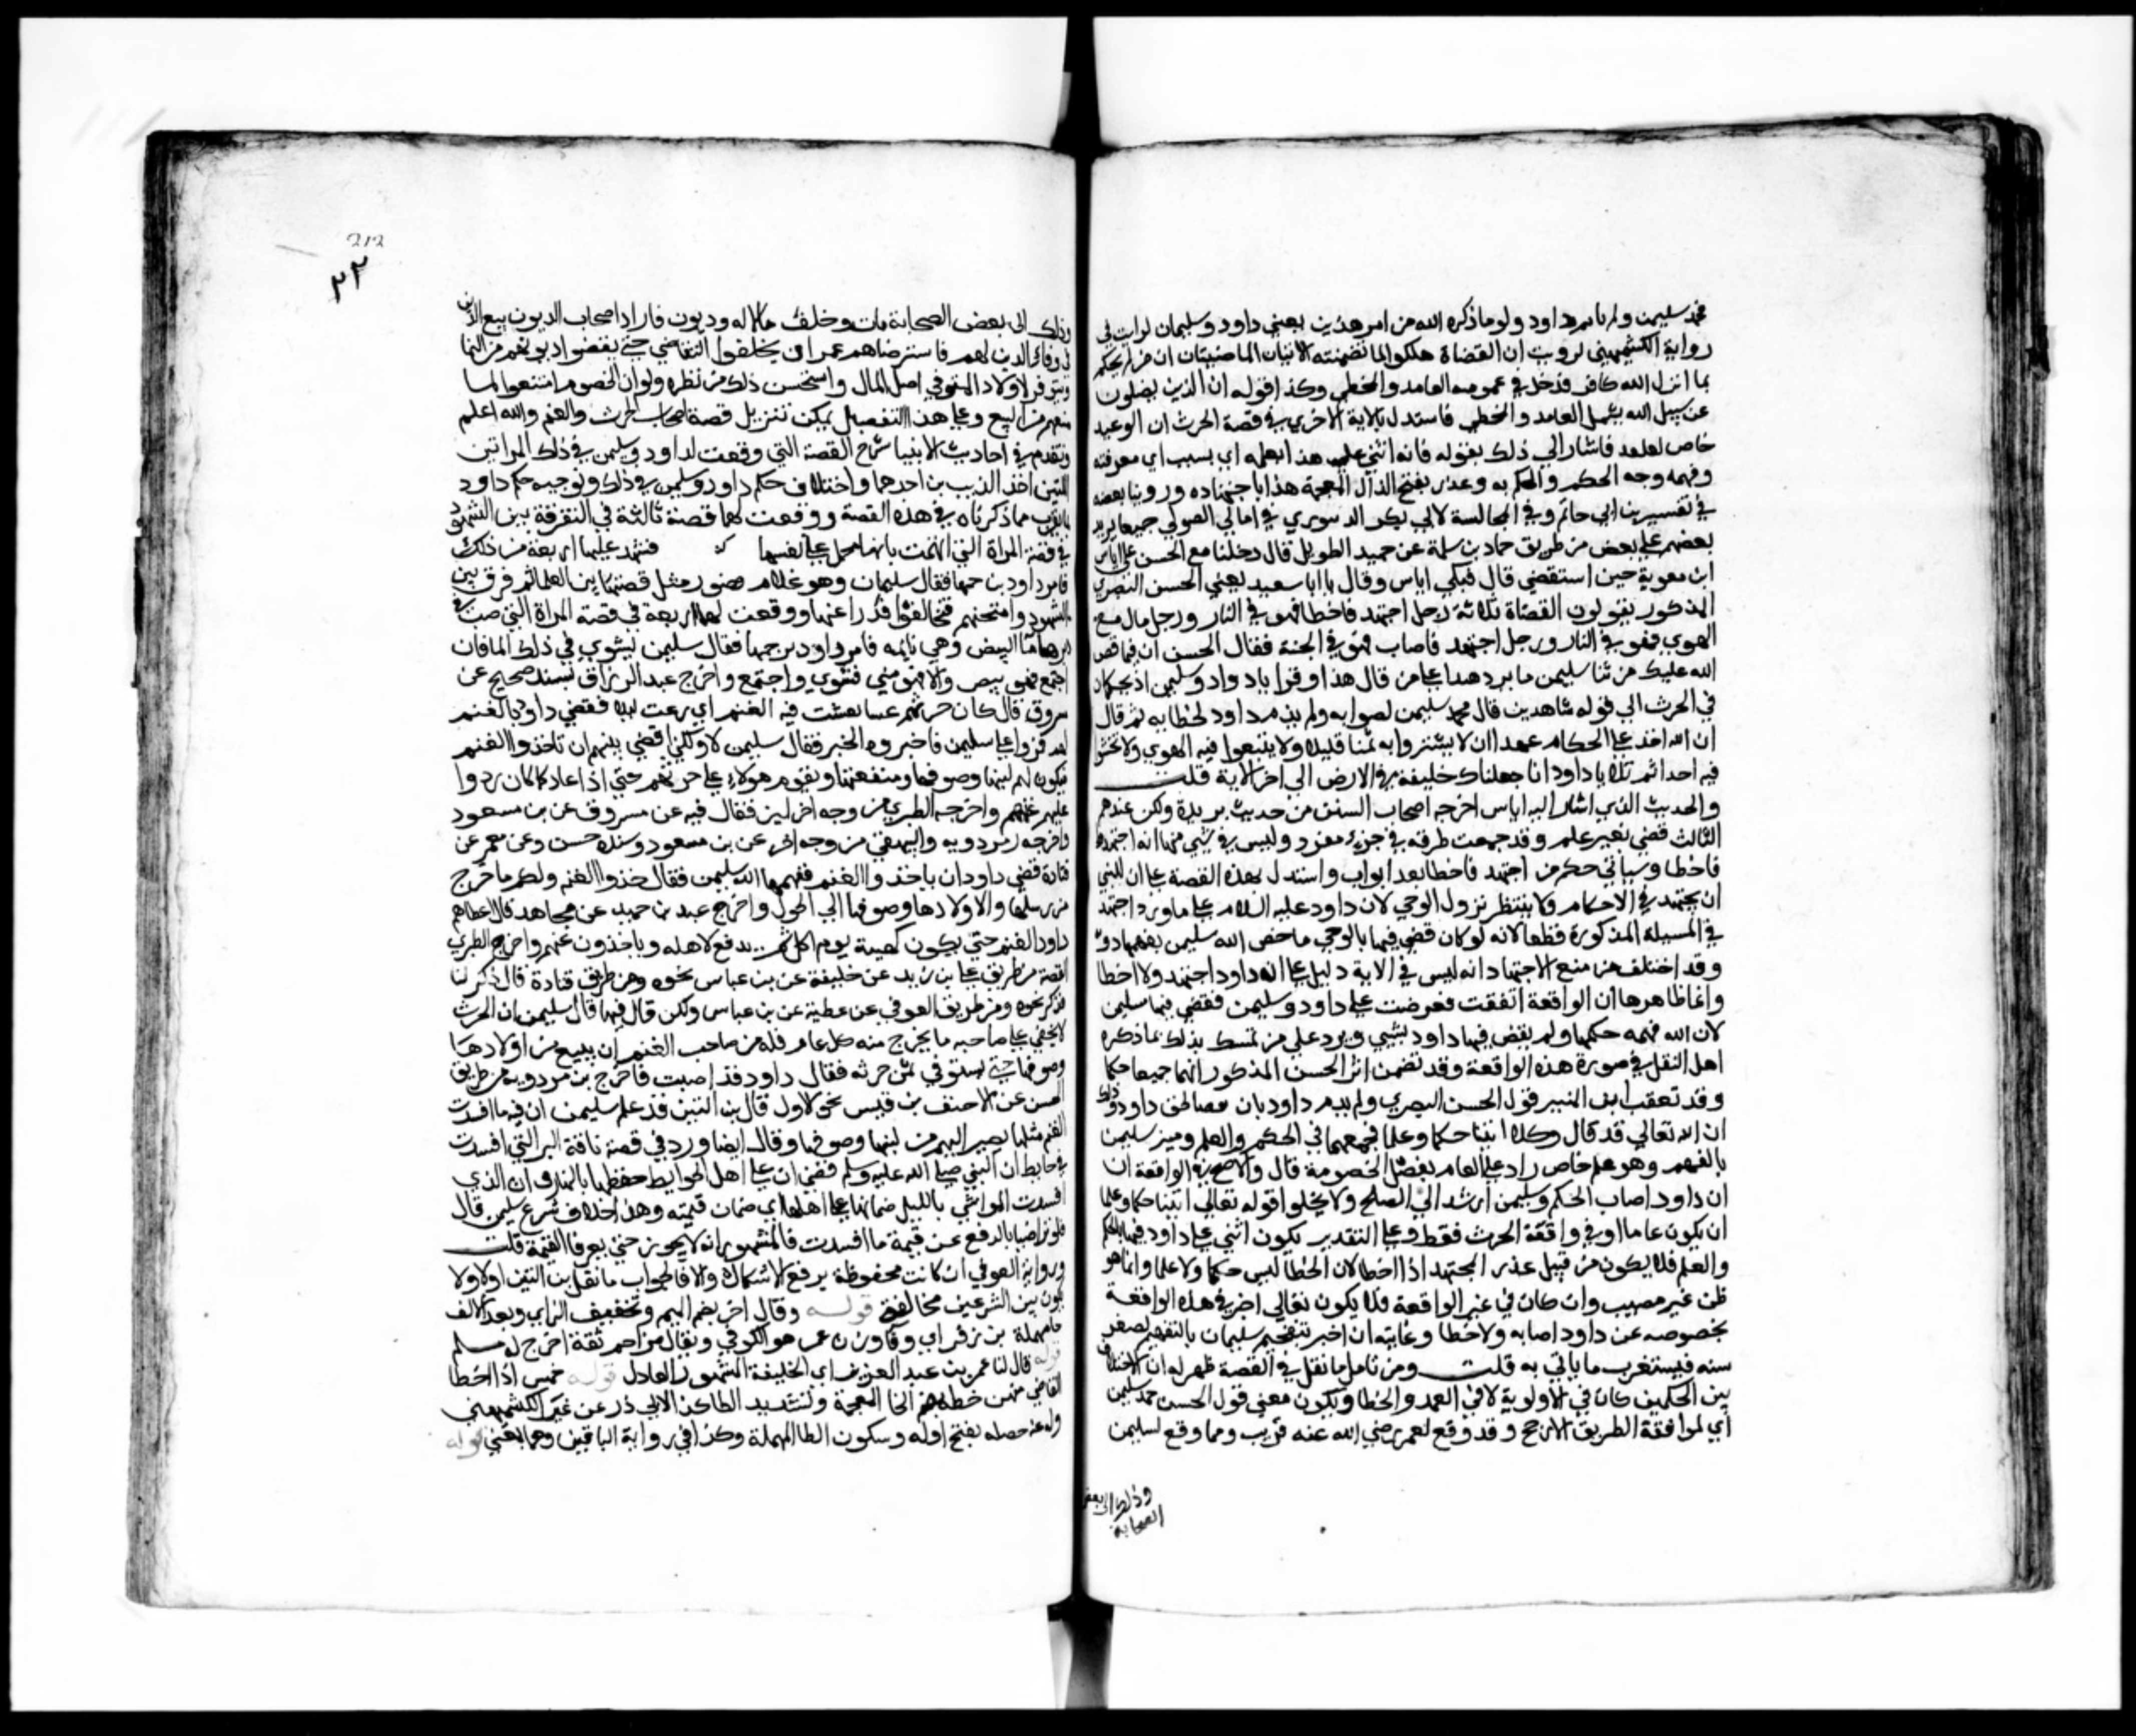 فحمد سليمن ولم يلم داود ولو ما ذكره الله من امر هذين يعني داود وسليمان لرايت في
رواية الكشميهني لرويت ان القضاة هلكوا لما تضمنته الايتان الماضيتان ان من لم يحكم
بما انزل الله كافر فدخل في عمومه العامد والمخطي وكذا قوله ان الذين يضلون
عن سبيل الله يشمل العامد والمخطي فاستدل بالاية الاخري في قصة الحرث ان الوعيد
خاص لعامد فاشار الي ذلك بقوله فانه اثني علي هذا بعلمه اي بسبب اي معرفته
وفهمه وجه الحكم والحكم به وعذر بفتح الذال المعجمة هذا باجتهاده وروينا بعضه
في تفسير بن ابي حاتم وفي المجالسة لابي بكر الدينوري في امالي الصولي جميعا يزيد
بعضهم علي بعض من طريق حماد بن سلمة عن حميد الطويل قال دخلنا مع الحسن علي اياس
ابن معوية حين استقضي قال فبكي اياس وقال يا ابا سعيد يعني الحسن البصري
المذكور يقولون القضاة ثلاثة رجل اجتهد فاخطا فهو في النار ورجل مال مع
الهوي فهو في النار ورجل اجتهد فاصاب فهو في الجنة فقال الحسن ان فيما قص
الله عليك من نبا سليمن ما يرد هذا علي من قال هذا وقرا وداود وسليمن اذ يحكمان
في الحرث الي قوله شاهدين قال فحمد سليمن لصوابه ولم يذم داود لخطايه ثم قال
ان الله اخذ علي الحكام عهدا ان لا يشتروا به ثمنا قليلا ولا يتبعوا فيه الهوي ولا يخشوا
فيه احدا ثم تلا يا داود انا جعلناك خليفة في الارض الي اخر الاية قلت
والحديث الذي اشار اليه اياس اخرجه اصحاب السنن من حديث بريدة ولكن عندهم
الثالث قضي بغير علم وقد جمعت طرقه في جزء مفرد وليس في شي منها انه اجتهد
فاخطا وسياتي حكم من اجتهد فاخطا بعد ابواب واستدل بهذه القصة علي ان للنبي
ان يجتهد في الاحكام ولا ينتظر نزول الوحي لان داود عليه السلام علي ما ورد اجتهد
في المسيلة المذكورة قطعا لانه لو كان قضي فيها بالوحي ما خص الله سليمن بفهمها دونه
وقد اختلف من منع الاجتهاد انه ليس في الاية دليل علي ان داود اجتهد ولا اخطا
وانما ظاهرها ان الواقعة اتفقت فعرضت علي داود وسليمن فقضي فيها سليمن
لان الله فهمه حكمها ولم يقض فيها داود بشي ويرد علي من تمسك بذلك بما ذكره
اهل النقل في صورة هذه الواقعة وقد تضمن اثر الحسن المذكور انهما جميعا حكما
وقد تعقب ابن المنير قول الحسن البصري ولم يذم داود بان فيه نقصا لحق داود وذلك
ان الله تعالي قد قال وكلا اتينا حكما وعلما فجمعهما في الحكم والعلم وميز سليمن
بالفهم وهو علم خاص زاد علي العام بفصل الخصومة قال والاصح في الواقعة ان
ان داود اصاب الحكم وسليمن ارشد الي الصلح ولا يخلوا قوله تعالي اتينا حكما وعلما
ان يكون عاما او في واقعة الحرث فقط وعلي التقدير يكون اثني علي داود فيها بالحكم
والعلم فلا يكون من قبيل عذر المجتهد اذا اخطا لان الخطا ليس حكما ولا علما وانما هو
ظن غير مصيب وان كان في غير الواقعة فلا يكون تعالي اخبر في هذه الواقعة
بخصوصه عن داود اصابه ولا خطا وغايته ان اخبر بتفهيم سليمان بالتفهيم لصغر
سنه فيستغرب ما ياتي به قلت ومن تامل ما نقل في القصة ظهر له ان الاختلاف
بين الحكمين كان في الاولوية لا في العمد والخطا ويكون معني قول الحسن حمد سليمن
اي لموافقة الطريق الارجح وقد وقع لعمر رضي الله عنه قريب ومما وقع لسليمن
وذلك الي بعض
الصحابة
212
وذلك الي بعض الصحابة مات وخلف مالا له وديون فاراد اصحاب الديون بيع
في وفاء الدين لهم فاسترضاهم عمر ان يخلفوا التقاضي حتي يقضوا ديونهم من النما
ويتوفر لاولاد المتوفي اصل المال واستحسن ذلك من نظره ولو ان الخصوم امتنعوا لما
منعهم من البيع وعلي هذا التفصيل يمكن تنزيل قصة اصحاب الحرث والغنم والله اعلم
وتقدم في احاديث الانبيا شرح القصة التي وقعت لداود وسليمن في ذلك المراتين
اللتين اخذ الذيب بن احدهما واختلاف حكم داود وسليمن في ذلك وتوجيه حكم داود
بما يقرب مما ذكرناه في هذه القصة ووقعت لهما قصة ثالثة في التفرقة بين الشهود
في قصة المراة التي اتهمت بانها تحمل علي نفسها فشهد عليها اربعة من ذلك
فامر داود بن حمها فقال سليمان وهو غلام فصور مثل قصتها بين الغلمان ثم فرق بين
الشهود وامتحنهم فتخالفوا فدرا عنها ووقعت لهما رابعة في قصة المراة التي صب في
دبرها ما البيض وهي نايمه فامر داود برجمها فقال سليمن يشوي في ذلك الما فان
اجتمع فهو بيض والا فهو مني فشوي واجتمع واخرج عبد الرزاق بسند صحيح عن
مسروق قال كان حرثهم عنبا نفشت فيه الغنم اي رعت ليلا فقضي داود بالغنم
لهم فمروا علي سليمن فاخبروه الخبر فقال سليمن لا ولكن اقضي بينهم ان تاخذوا الغنم
فيكون لهم لبنها وصوفها ومنفعتها ويقوم هولاء علي حرثهم حتي اذا عاد كما كان ردوا
عليهم غنمهم واخرجه الطبري من وجه اخر لين فقال فيه عن مسروق عن بن مسعود
واخرجه بن مردويه والبيهقي من وجه اخر عن بن مسعود وسنده حسن وعن معمر عن
قتادة قضي داود ان ياخذوا الغنم ففهمها الله سليمن فقال خذوا الغنم ولكم ما خرج
من رسلها واولادها وصوفها الي الحول واخرج عبد بن حميد عن مجاهد قال اعطاهم
داود الغنم حتي يكون كهيئة يوم اكل ثم يدفع لاهله وياخذون غنمهم واخرج الطبري
القصة من طريق علي بن زيد عن خليفة عن بن عباس نحوه ومن طريق قتادة قال ذكر لنا
فذكر نحوه ومن طريق العوفي عن عطية عن بن عباس ولكن قال فيها قال سليمن ان الحرث
لا يخفي علي صاحبه ما يخرج منه كل عام فله من صاحب الغنم ان يبيع من اولادها
وصوفها حتي يستوفي ثمن حرثه فقال داود قد اصبت واخرج بن مردويه من طريق
الحسن عن الاحنف بن قيس نحو الاول قال بن التين قد علم سليمن ان قيمة ما افسدت
الغنم مثل ما يصير اليهم من لبنها وصوفها وقال ايضا ورد في قصة ناقة البراء التي افسدت
في حايط ان النبي صلي الله عليه وسلم قضي ان علي اهل الحوايط حفظها بالنهار وان الذي
افسدت المواشي بالليل ضمانها علي اهلها اي ضمان قيمته وهذا خلاف شرع سليمن قال
فلو تراضيا بالدفع عن قيمة ما افسدت فالمشهور انه لا يجوز حتي يعرفا القيمة قلت
ورواية العوفي ان كانت محفوظة يرفع الاشكال والا فالجواب ما نقل بن التين اولا ولا
يكون بين الشرعين مخالفة قوله وقال اخر بضم الميم وتخفيف الزاي وبعد الالف
حا مهملة بن زفر اي وفا وزن عمر هو الكوفي ويقال مزاحم ثقة اخرج له مسلم
قوله قال لنا عمر بن عبد العزيز اي الخليفة المشهور العادل قوله خمس اذا اخطا
القاضي منهن خطة بضم الخا المعجمة وتشديد الطا كذا لابي ذر عن غير الكشميهني
وله عنه خصلة بفتح اوله وسكون الطا المهملة وكذا في رواية الباقين وهما بمعني قوله